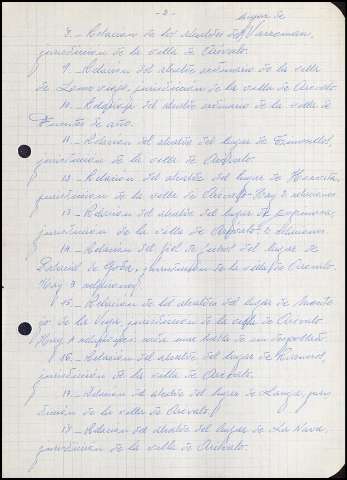 - 2 -
lugar de
8._ Relacion de los alcaldes del Narroman,
jurisdiccion de la villa de Arévalo.
9._ Relacion del alcalde ordinario de la villa
de Lomo viejo, jurisdiccion de la villa de Arévalo.
10._ del alcalde ordinario de la villa de
Fuentes de año.
11._ Relacion del alcalde del lugar de
jurisdiccion de la villa de Arévalo.
12._ Relacion del alcalde del lugar de
jurisdiccion de la villa de Arévalo. Hay 2 relaciones
13._ Relacion del alcalde del lugar de
jurisdiccion de la villa de Arévalo.
14._ Relacion del fiel de fechos del lugar de
jurisdiccion de la villa de Arévalo.
Hay 2 relaciones
15._ Relacion de los alcaldes del lugar de
de la Vega, jurisdiccion de la villa de Arévalo.
Hay una de un despoblado.
16._ Relacion del alcalde del lugar de
jurisdiccion de la villa de Arévalo.
17._ Relacion del alcalde del lugar de Langa, juris
diccion de la villa de Arévalo.
18._ Relacion del alcalde del lugar de La Nava,
jurisdiccion de la villa de Arévalo.